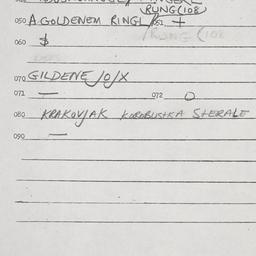 RUNG(108)
050 A.GOLDENEM RINGL/ 051 +
060 $
070 GILDENE/O/X
071 — 072 O
080 KRAKOVJAK KOROBUSHKA SHERALE
090 —